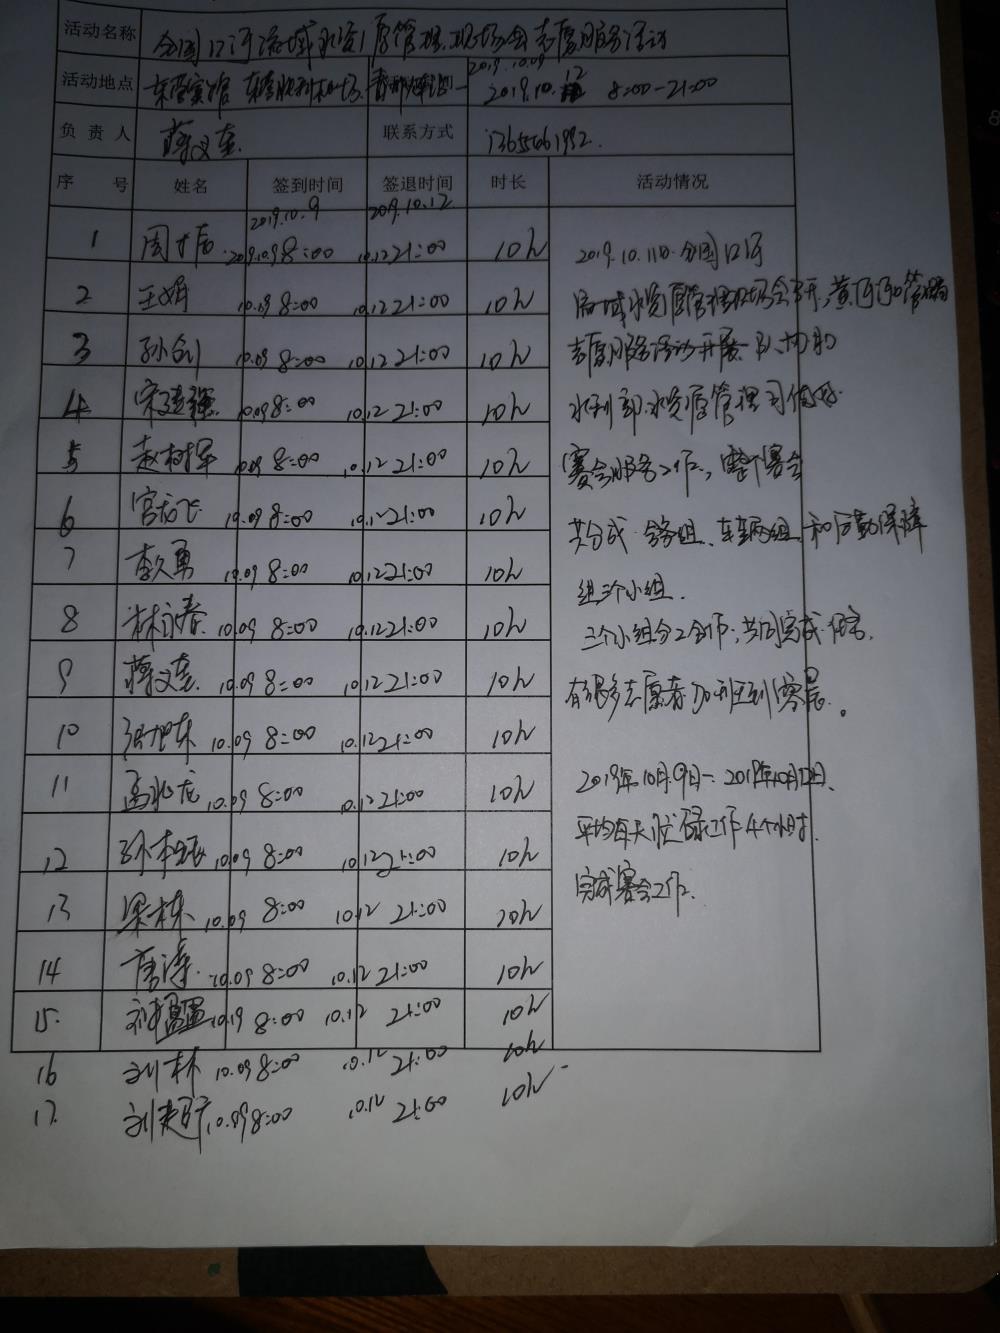 活动名称 全国江河流域水资源管理现场会志愿服务活动
活动地点 东营宾馆 东营胜利机场 2019.10.09 —
2019.10.12 8:00-21:00
负责人 蒋义奎 联系方式
序号 姓名 签到时间 签退时间 时长 活动情况
2019.10.9 2019.10.12
1 2019.10.9 8:00 10.12 21:00 10h
2 王娟 10.09 8:00 10.12 21:00 10h
3 孙剑 10.09 8:00 10.12 21:00 10h
4 宋建强 10.09 8:00 10.12 21:00 10h
5 赵树军 10.09 8:00 10.12 21:00 10h
6 宫龙飞 10.09 8:00 10.12 21:00 10h
7 李久勇 10.09 8:00 10.12 21:00 10h
8 林永春 10.09 8:00 10.12 21:00 10h
9 蒋义奎 10.09 8:00 10.12 21:00 10h
10 10.09 8:00 10.12 21:00 10h
11 高兆龙 10.09 8:00 10.12 21:00 10h
12 孙本 10.09 8:00 10.12 21:00 10h
13 梁栋 10.09 8:00 10.12 21:00 10h
14 唐涛 10.09 8:00 10.12 21:00 10h
15 10.19 8:00 10.12 21:00 10h
16 刘林 10.09 8:00 10.12 21:00 10h
17. 刘 10.09 8:00 10.12 21:00 10h
2019.10.11日.全国江河
流域水资源管理现场会召开,黄河口
志愿服务活动开展.队协助
水利部水资源管理司做好
赛会服务工作,整个赛会
共分成会务组、车辆组和后勤保障
组三个小组.
三个小组分工合作,共同完成任务,
有很多志愿者加班到凌晨。
2019年10月9日-2019年10月12日.
平均每天忙碌工作4个小时.
完成赛会工作.